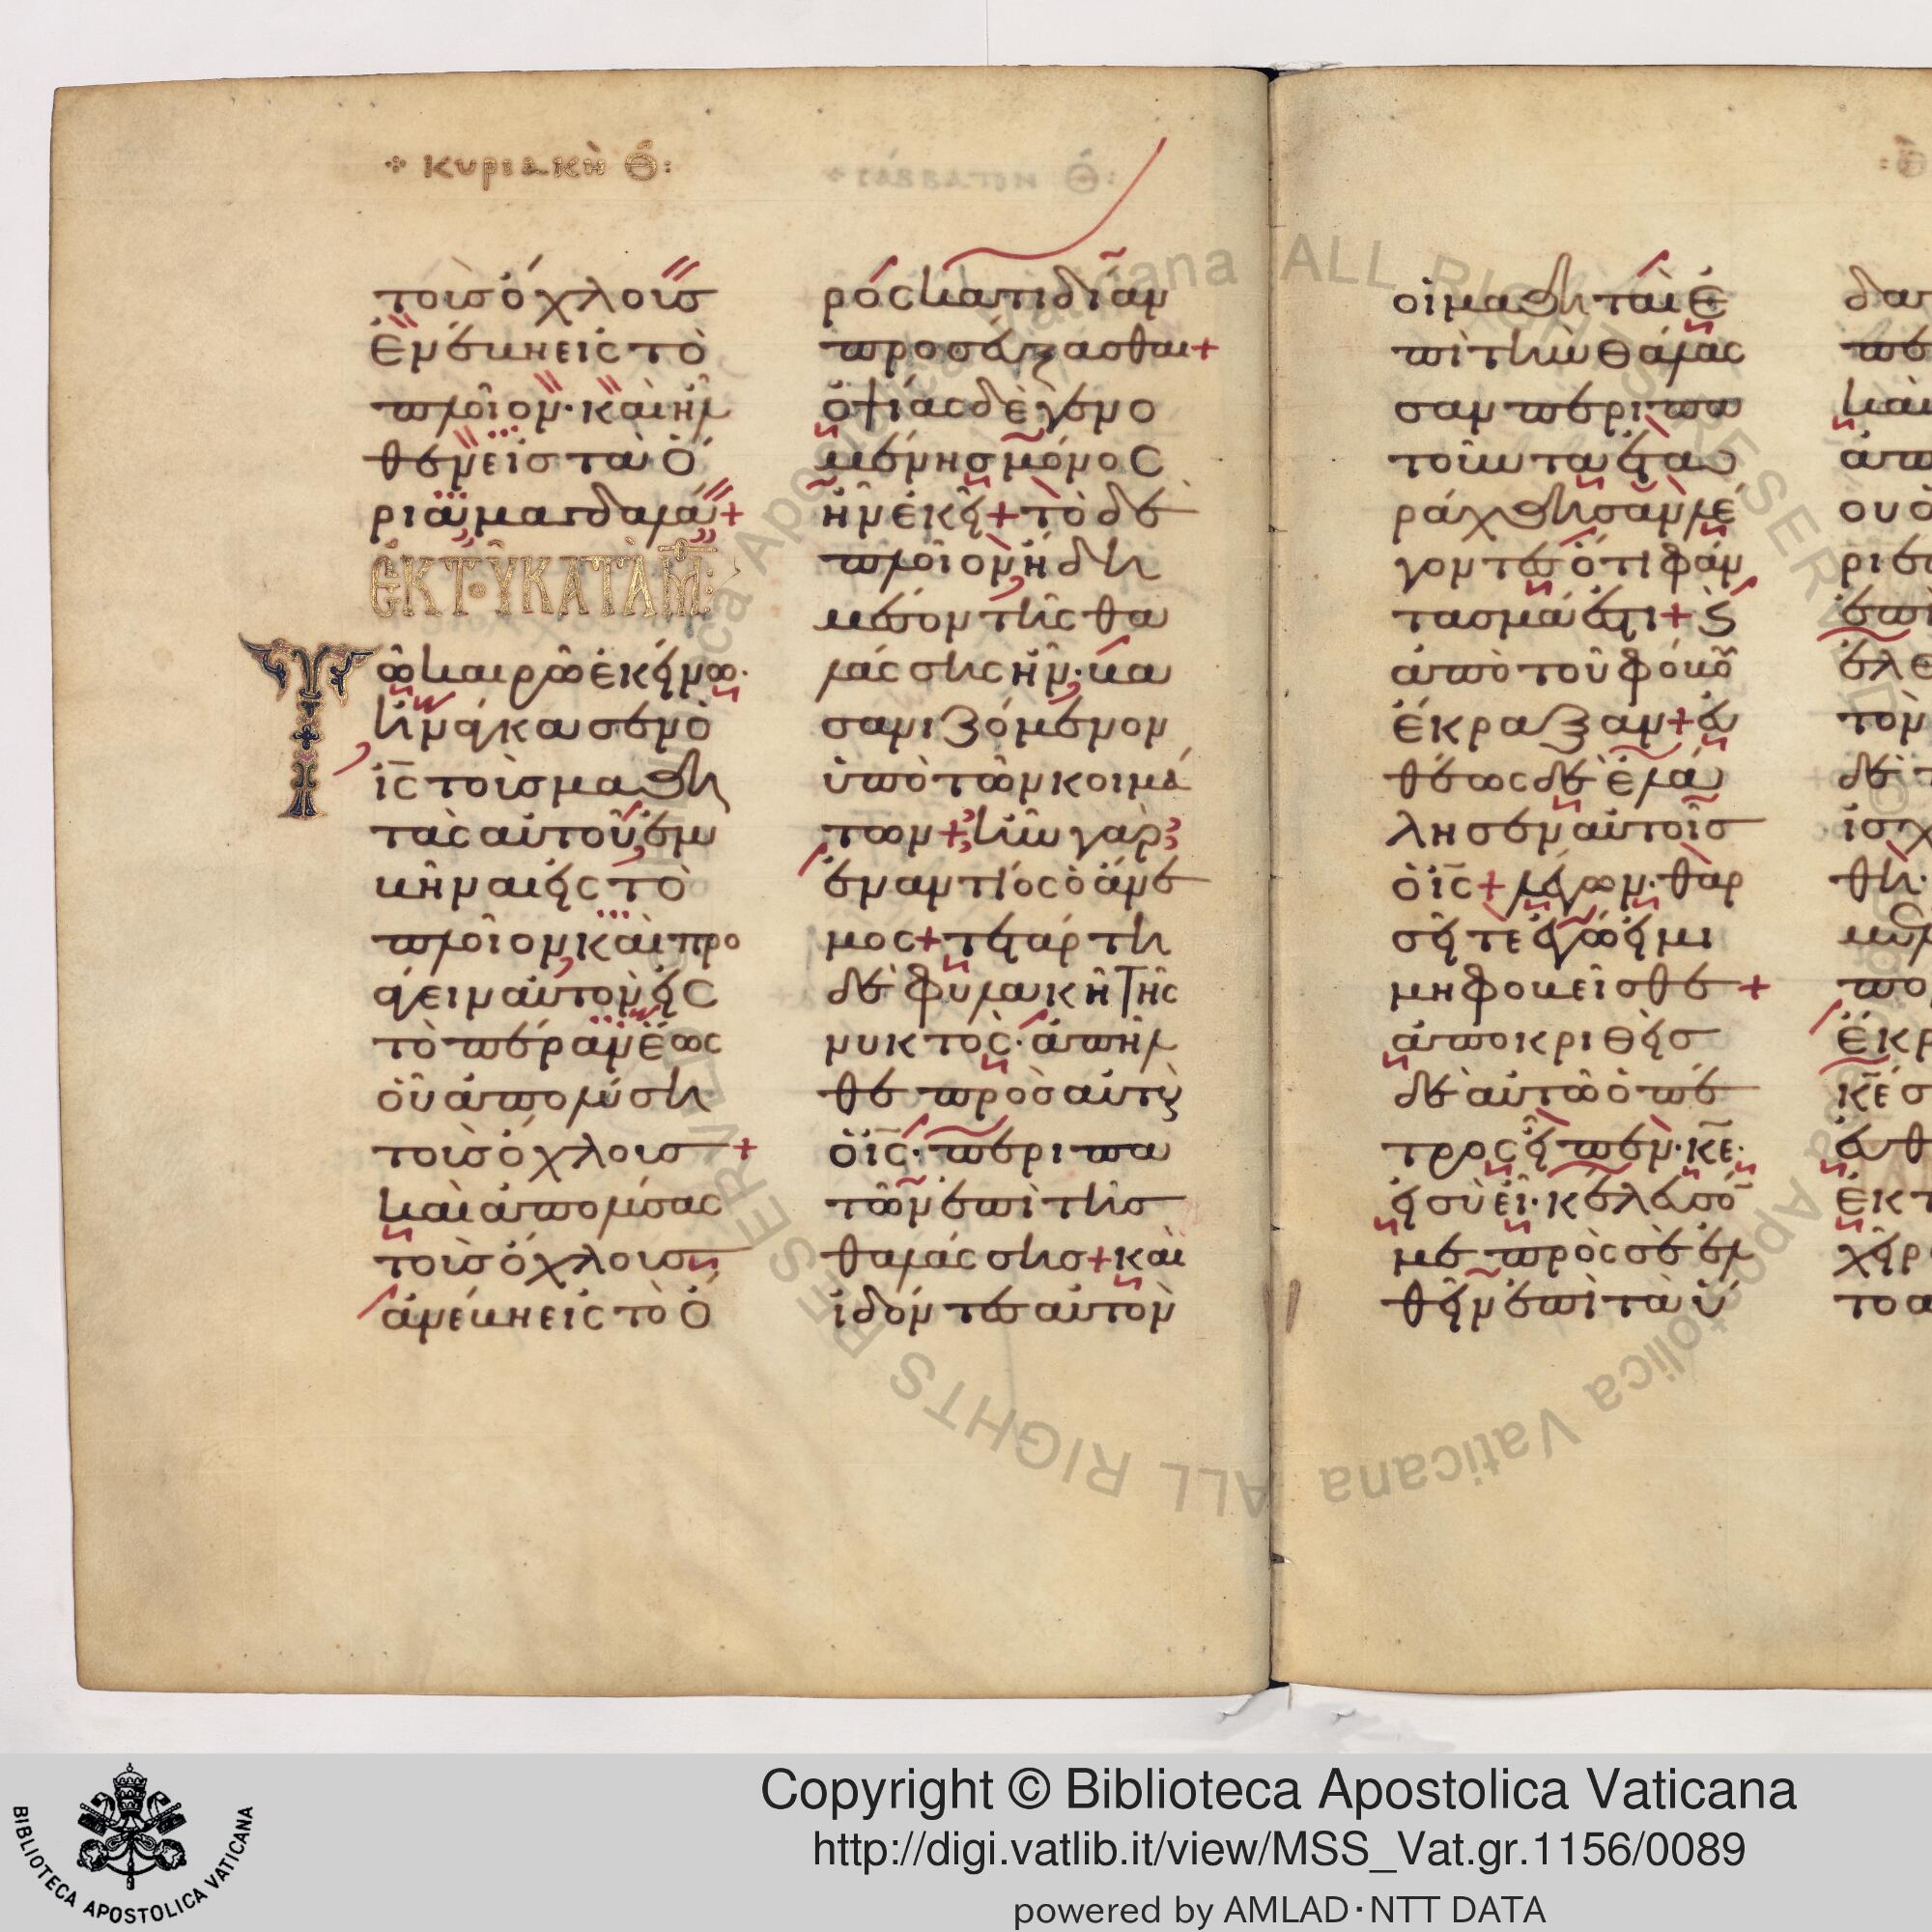 κυριακὴ θ:
τοισ ὄχλοισ
ἐνέβη εἰς τὸ
πλοῖον· καὶ ἦλ
θεν εἰσ τὰ ὅ
ρια μαγδαλά+
ἐκ τοῦ κατὰ Μ:
Τῶ καιρῶ ἐκείνω·
ἠνάγκασεν ὁ
ἰς τοὺσ μαθη
τὰς αὐτοῦ ἐμ
βῆναι εἰς τὸ
πλοῖον, καὶ προ
άγειν αὐτὸν εἰς
τὸ πέραν ἕως
οὗ ἀπολύση
τοὺσ ὄχλουσ+
καὶ ἀπολύσας
τοὺσ ὄχλουσ
ἀνέβη εἰς τὸ ὄ
ρος κατιδίαν
προσεύξασθαι+
ὀψίας δὲ γενο
μένησ μόνος
ἦν ἐκεῖ+ τὸ δὲ
πλοῖον ἤδη
μέσον τῆς θα
λάσσης ἦν· βα
σανιζόμενον
ὑπὸ τῶν κοιμά
των+ ἦν γὰρ
ἐναντίος ὁ ἄνε
μος+ τετάρτη
δὲ φυλακῆ τῆς
νυκτὸς· ἀπῆλ
θε πρὸσ αὐτοὺς
ὁ ἰς· περιπα
τῶν ἐπὶ τῆσ
θαλάσσησ+ καὶ
ἰδόντεσ αὐτὸν
οἱ μαθηταὶ ἐ
πὶ τὴν θάλασ
σαν περιπα
τοῦντα ἐτα
ράχθησαν λέ
γοντεσ ὅτι φάν
τασμά ἐστι+ καὶ
ἀπὸ τοῦ φόβου
ἔκραξαν+ εὐ
θέως δὲ ἐλά
λησεν αὐτοῖσ
ὁ ἰς+ λέγων· θαρ
σεῖτε ἐγώ εἰμι
μὴ φοβεῖσθε+
ἀποκριθεὶσ
δὲ αὐτῶ ὁ πέ
τρος εἶπεν· κε·
εἰ σὺ εἶ· κέλευσόν
με πρὸς σὲ ἐλ
θεῖν ἐπὶ τὰ ὕ
Copyright © Biblioteca Apostolica Vaticana
http://digi.vatlib.it/view/MSS_Vat.gr.1156/0089
powered by AMLAD·NTT DATA
BIBLIOTECA APOSTOLICA VATICANA